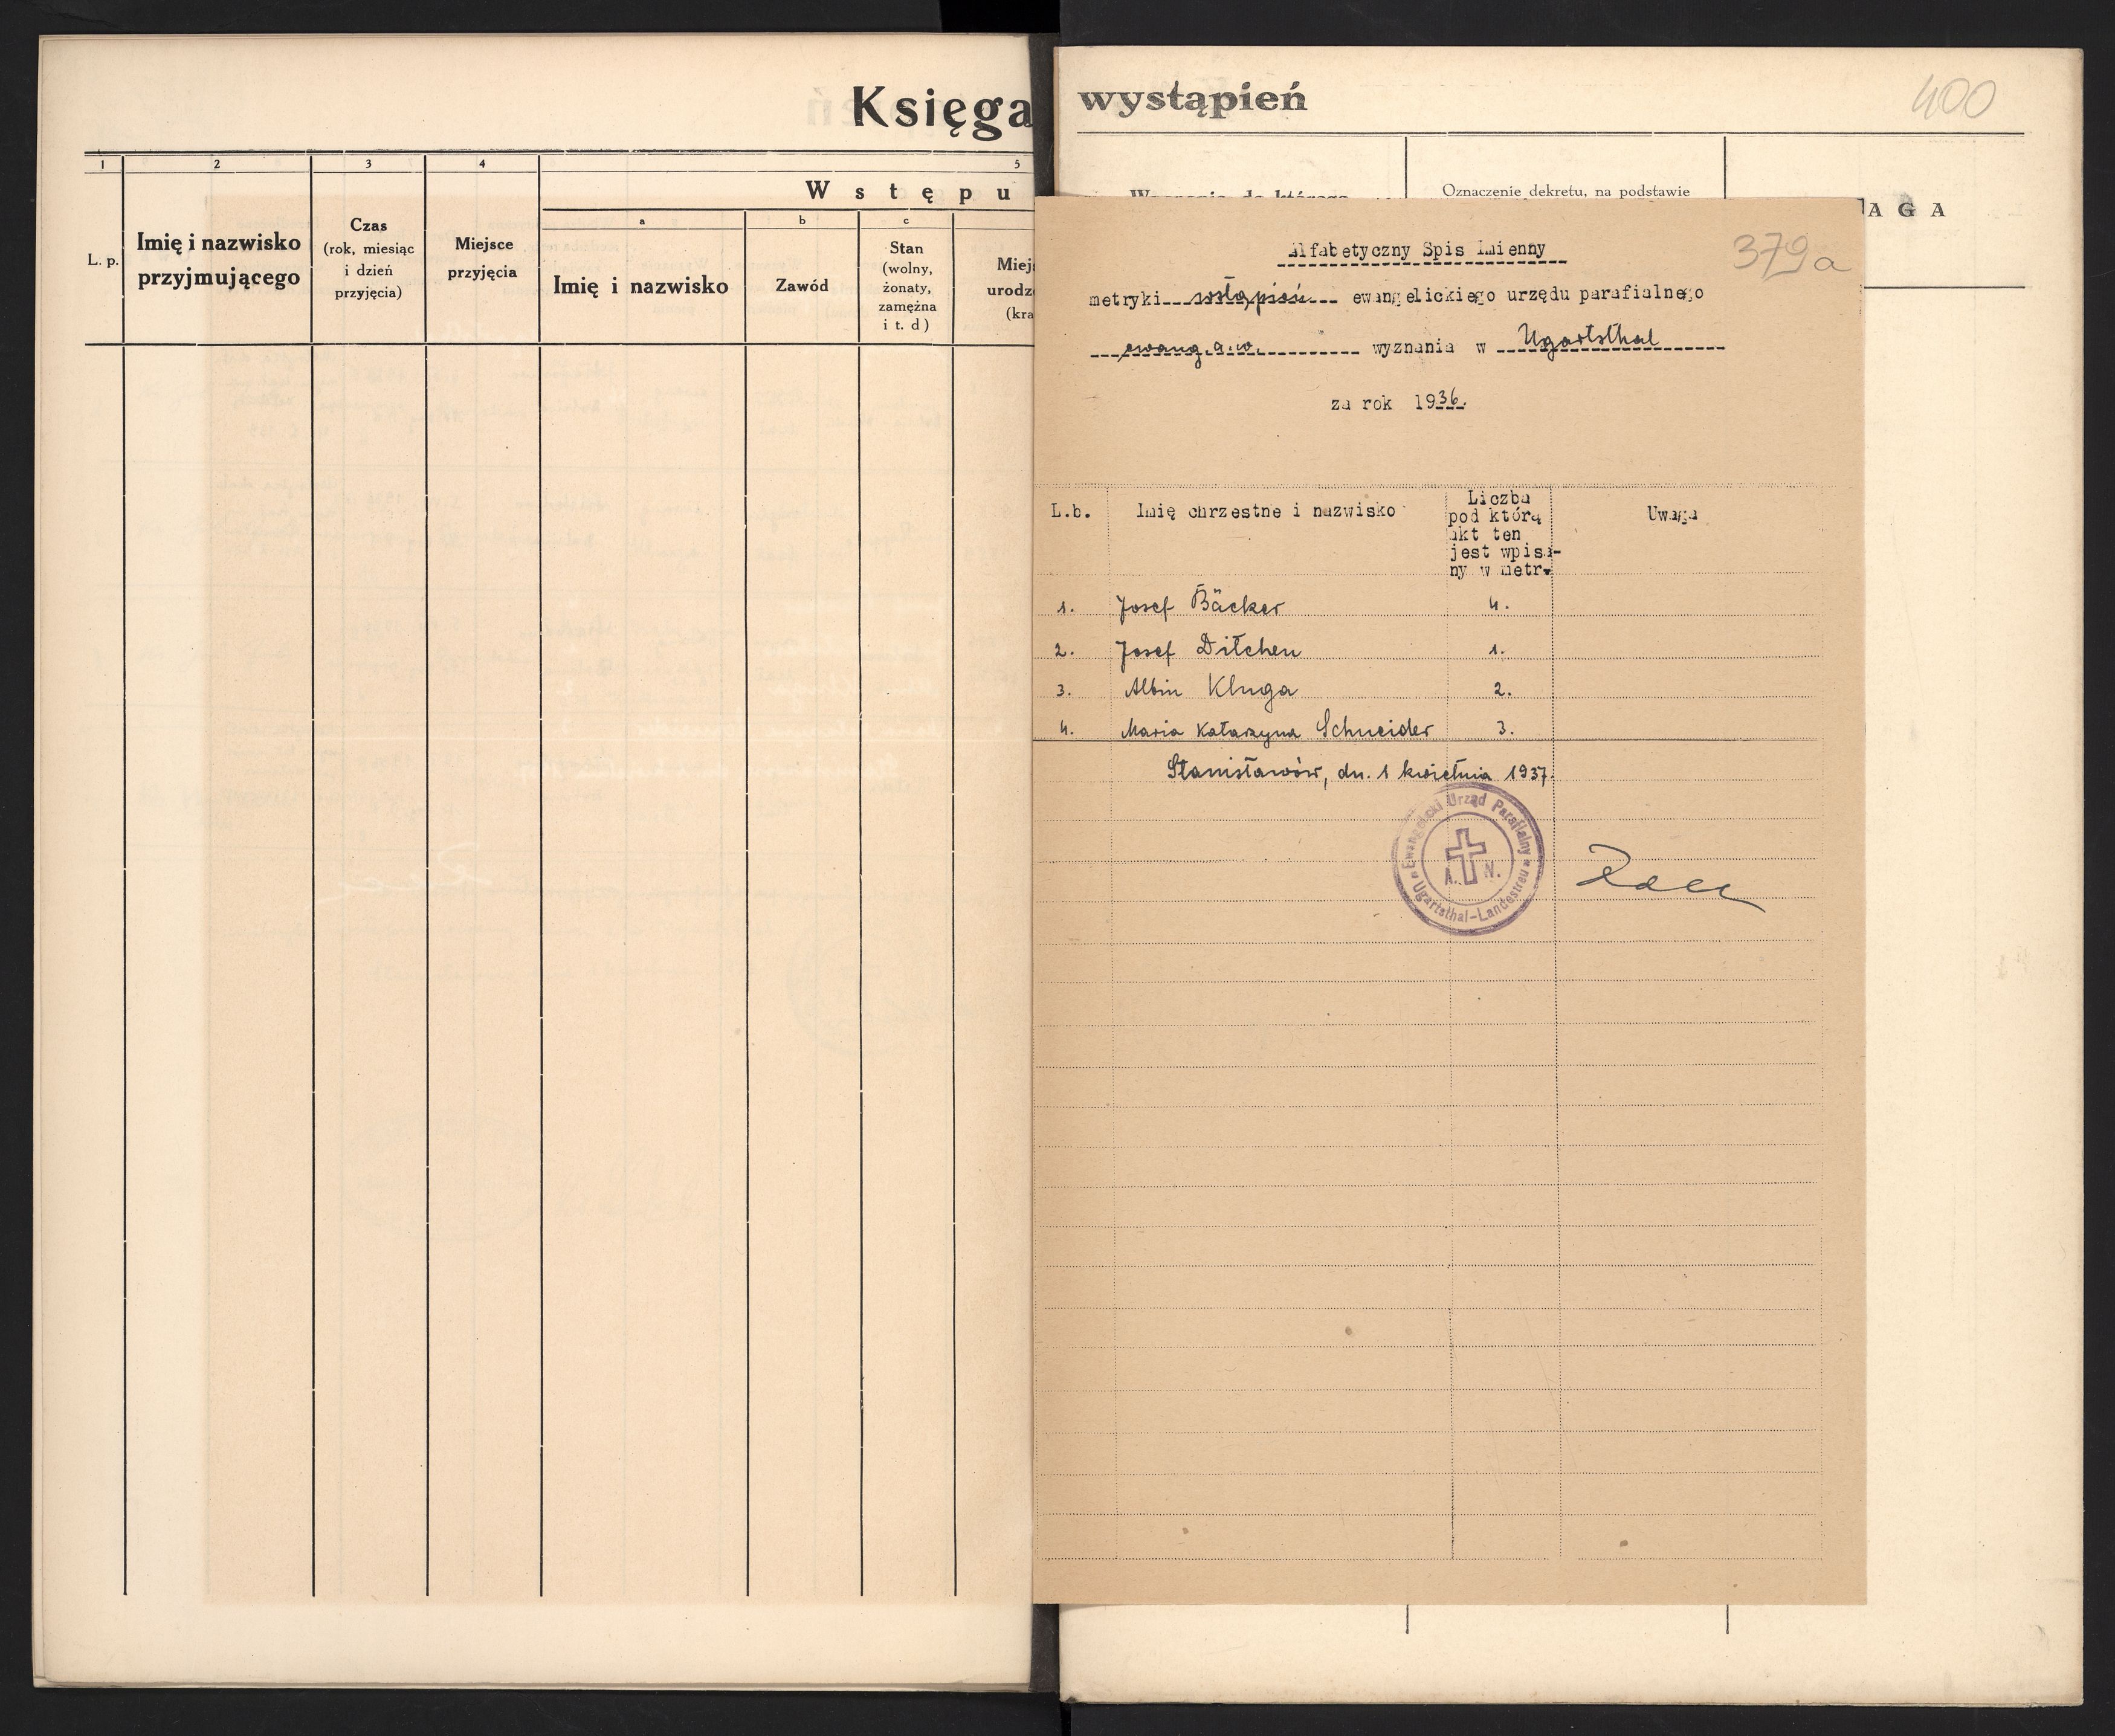 Księga
1 2 3 4 5
W s t ę p u
L. p.
Imię i nazwisko
przyjmującego
Czas
(rok, miesiąc
i dzień
przyjęcia)
Miejsce
przyjęcia
a b c
Imię i nazwisko
Zawód
Stan
(wolny,
żonaty,
zamężna
i t. d)
Miej
urodz
(kra
wystąpień
400
Oznaczenie dekretu, na podstawie
A G A
379a
Alfabetyczny Spis Imienny
metryki wstąpień ewangelickiego urzędu parafialnego
ewang. a.w. wyznania w Ugartsthal
za rok 1936.
L.b.
Imię chrzestne i nazwisko
Liczba
pod którą
akt ten
jest wpisa-
ny w metr.
Uwaga
1. Josef Bäcker 4.
2. Josef Ditchen 1.
3. Albin Kluga 2.
4. Maria Katarzyna Schneider 3.
Stanisławów, dn. 1 kwietnia 1937.
Ewangelicki Urząd Parafialny w
Ugartsthal-Landestreu
A. N.